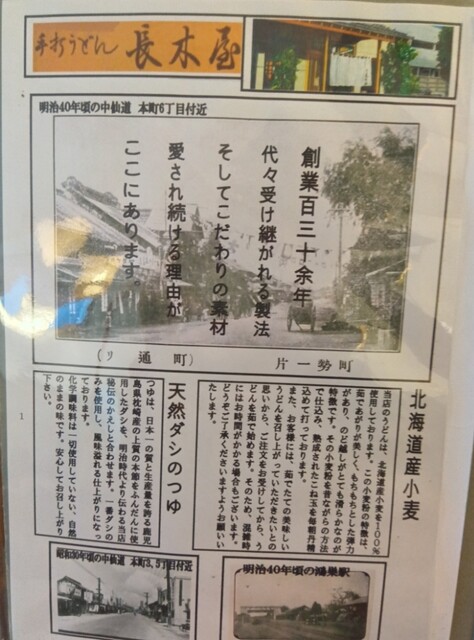 手打うどん 長木屋
明治40年頃の中仙道 本町6丁目付近
創業百三十余年
代々受け継がれる製法
そしてこだわりの素材
愛され続ける理由が
ここにあります。
(り通町) 片一勢町
北海道産小麦
当店のうどんは、北海道産小麦を100%
使用しております。この小麦粉の特徴は、
茹であがりが美しく、もちもちとした弾力
があり、のど越しがとても滑らかなのが
特徴です。その小麦粉を昔ながらの方法
で仕込み、熟成されたこね玉を毎朝丹精
込めて打っております。
また、お客様には、茹でたての美味しい
うどんを召し上がっていただきたいとの
思いから、ご注文をお受けしてから、う
どんを茹で始めます。そのため、混雑時
にはお時間がかかる場合もございます。
どうぞご了承くださいますようお願いい
たします。
天然ダシのつゆ
つゆは、日本一の質と生産量を誇る鹿児
島県枕崎産の上質の本節をふんだんに使
用したダシを、明治時代より伝わる当店
秘伝のかえしと合わせます。一番ダシの
みを使用し、風味溢れる仕上がりになっ
ております。
化学調味料は一切使用していない、自然
のままの味です。安心してお召し上がり
下さい。
昭和30年頃の中仙道 本町3,5丁目付近
明治40年頃の鴻巣駅